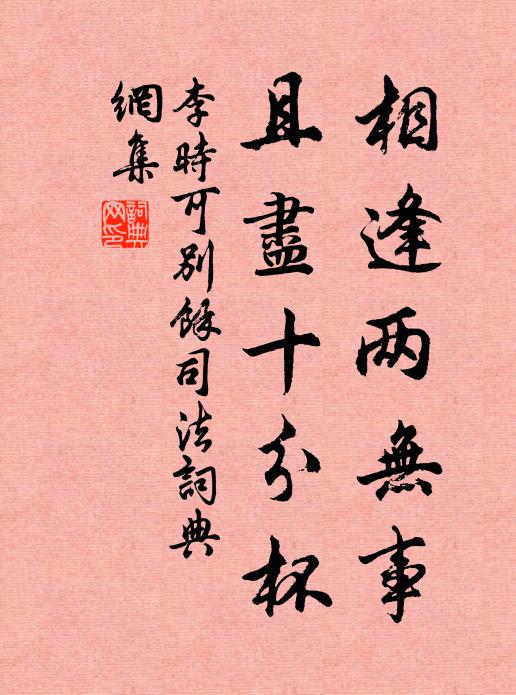 相逢两無事
且盡十分杯
李時可別餘司法詞典
網集
詞典網印